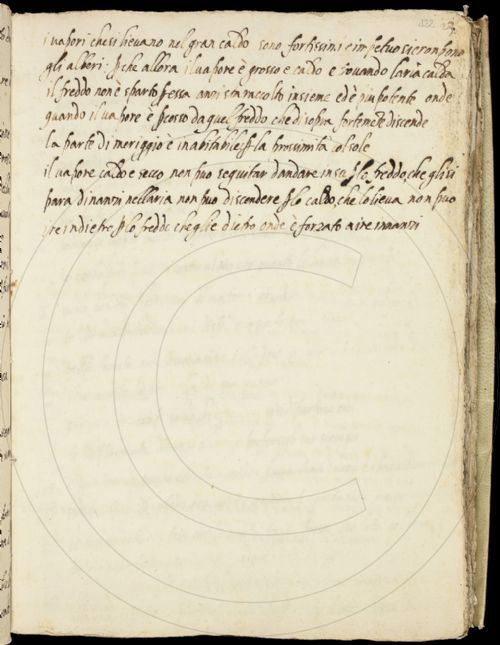 i vapori che si lievano nel gran caldo sono fortissimi e impetuosi e rompono
gli alberi. Pche allora il vapore è grosso e caldo e trovando l'aria calda
il freddo non è sparto per essa anzi sta raccolto insieme ed è piu potente onde
quando il vapore è percosso da quel freddo che di sopra fortemente discende
la parte di meriggio è inabitabile per la prossimita col sole
il vapore caldo e secco non puo seguitar d'andare in su per lo freddo, che gli si
para dinanzi nell'aria non puo discendere per lo caldo, che lo lieva non puo
ire indietro per lo freddo che gli è dietro onde è forzato a ire innanzi